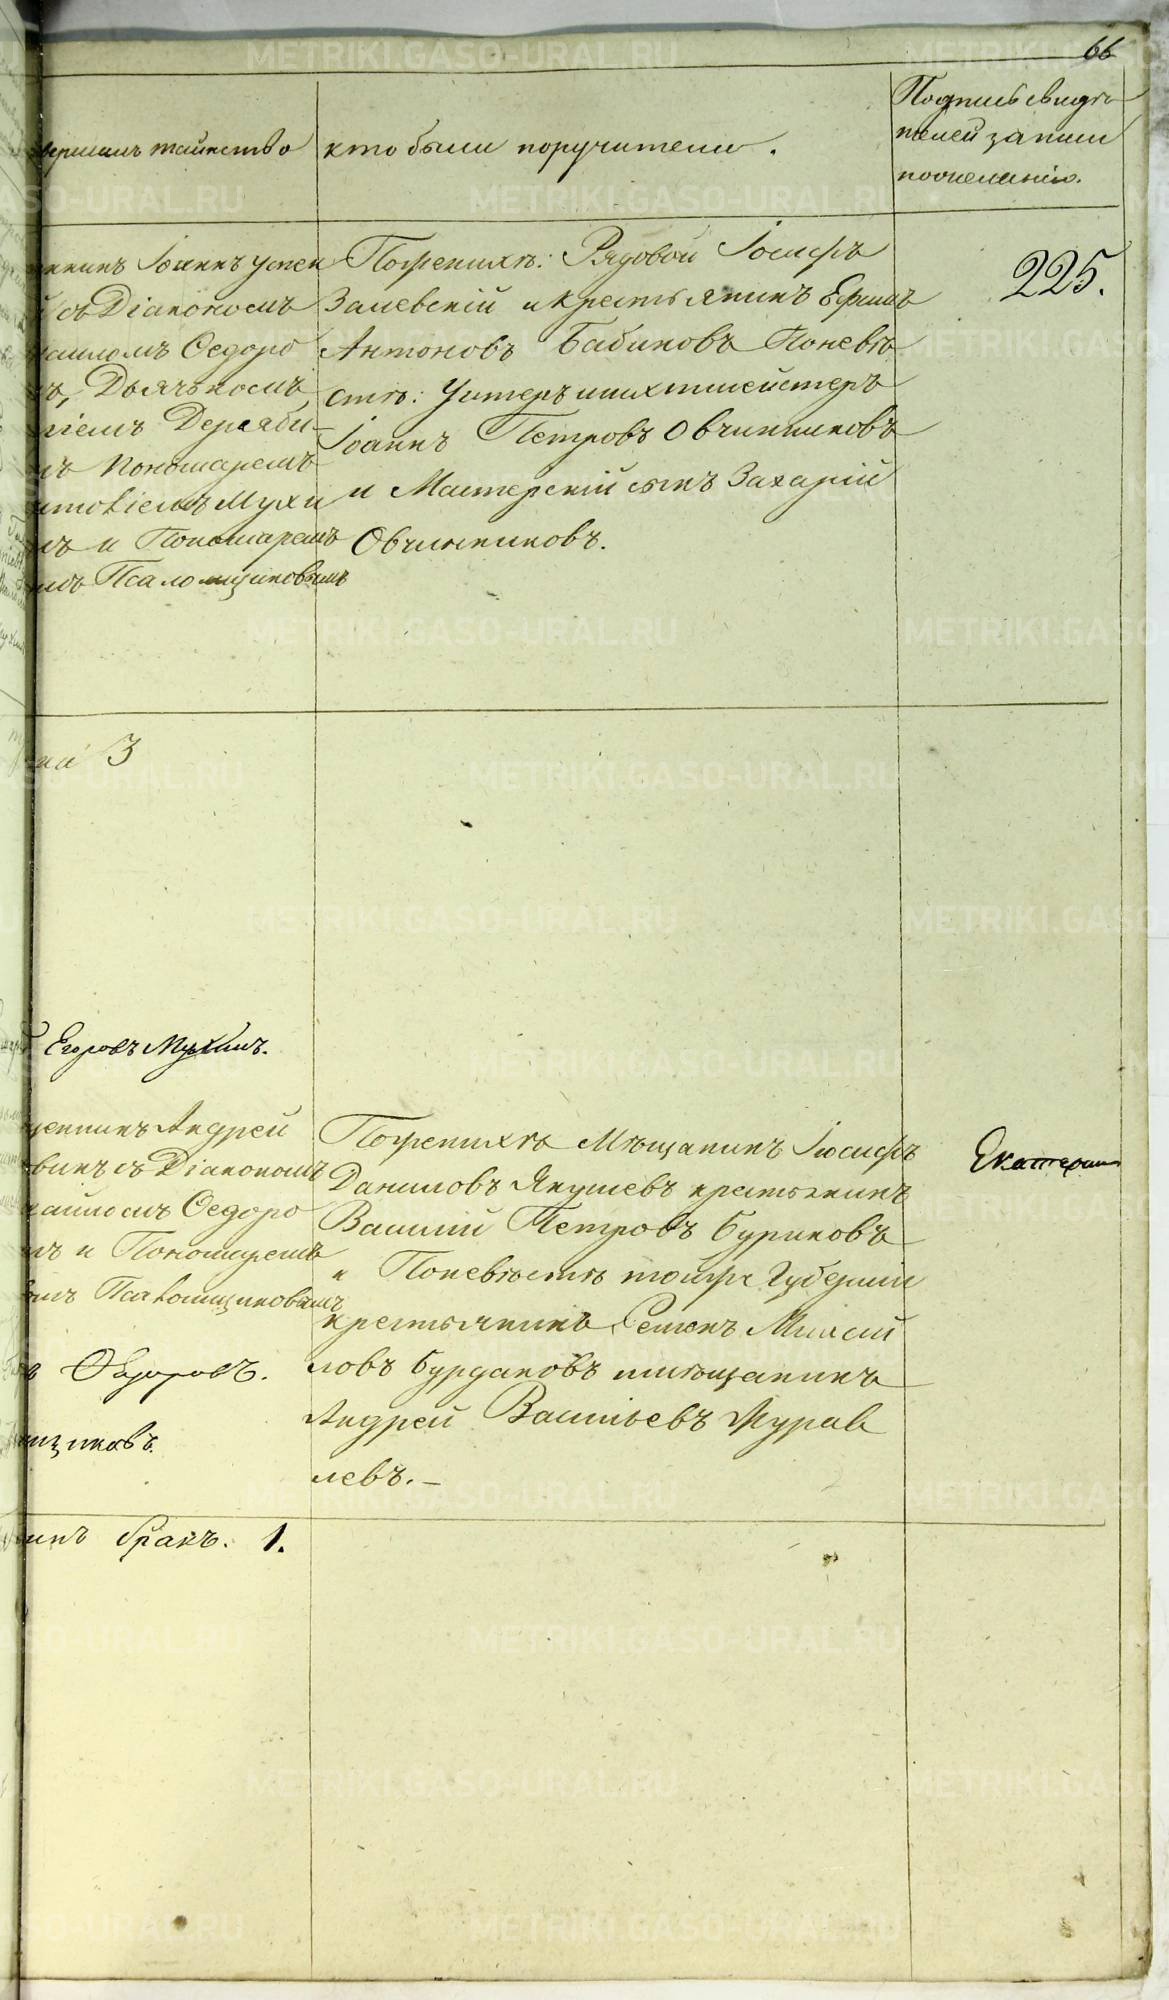 66
вершалъ таинство
кто были поручители.
Подпись свидѣ
телей записи
по желанію.
Іоаннъ Успен
съ Діакономъ
Ѳедоро
Дьячькомъ
Дераби-
Пономаремъ
Мухи
и Пономаремъ
Псаломщиковымъ
Поженихѣ: Рядовой Іосифъ
Залевскій и крестьянинъ Ефимъ
Антоновъ Бабиковъ Поневѣ
стѣ: Унтеръ шихтмейстеръ
Іоаннъ Петровъ Овчинниковъ
и Мастерскій сынъ Захарій
Овчинниковъ.
225.
3
Егоровъ Мухинъ.
Андрей
съ Діакономъ
Ѳедоро
и Пономаремъ
Псаломщиковымъ
Ѳедоровъ.
щиковъ.
Поженихѣ Мѣщанинъ Іосифъ
Даниловъ Якушевъ крестьянинъ
Василій Петровъ Буриковъ
и Поневѣстѣ тойже Губерніи
крестьянинъ Семенъ Михай
ловъ Бурдаковъ мѣщанинъ
Андрей Васильевъ Журав
левъ.–
Екатерин
бракъ. 1.
METRIKI.GASO-URAL.RU